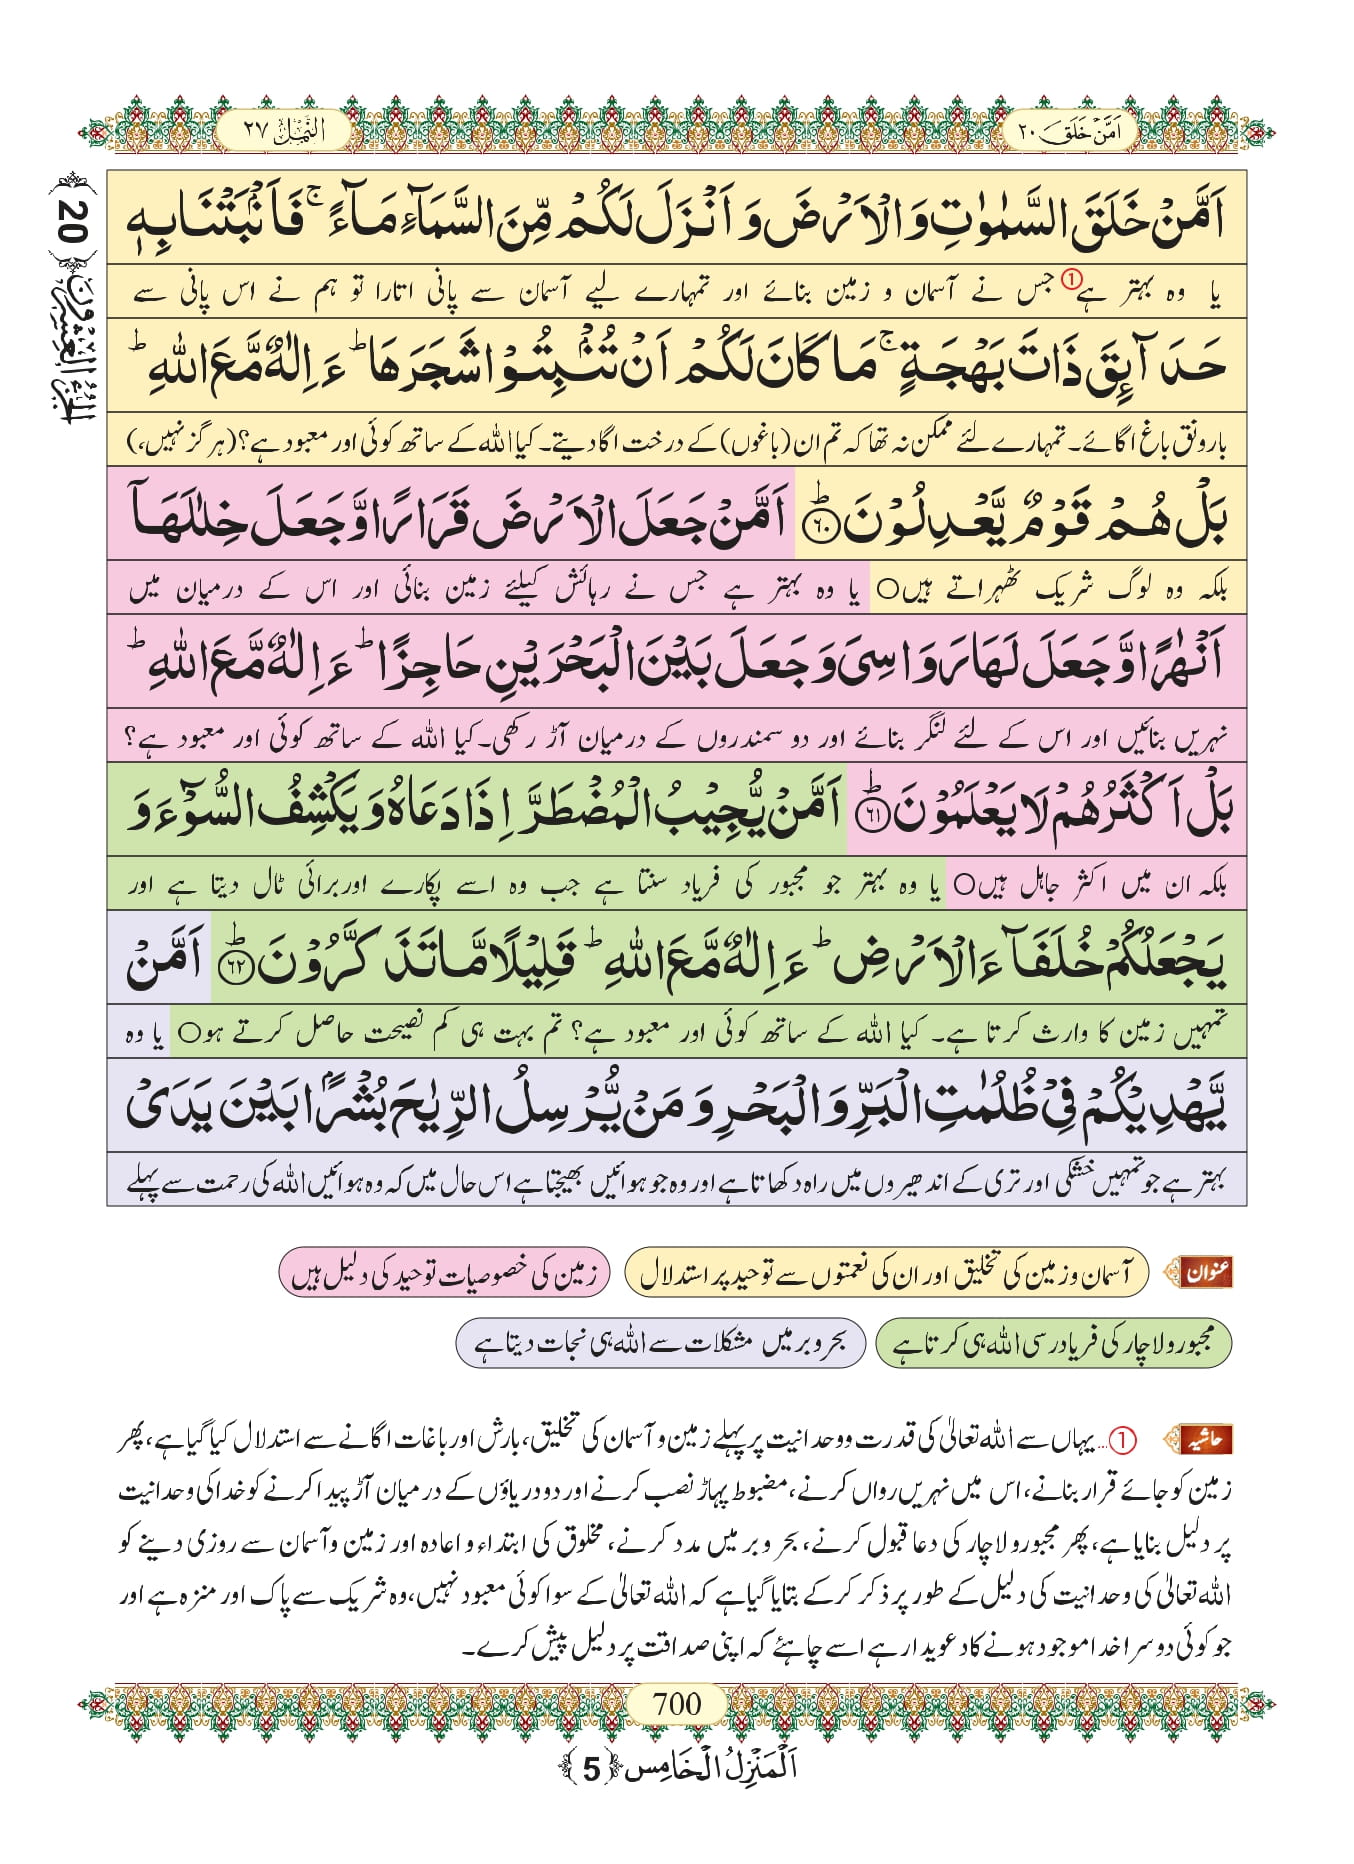 اَمَّنْ خَلَقَ ٢٠
النَّمْل ٢٧
اَلْجُزْءُ الْعِشْرُوْنَ ﴿20﴾
اَمَّنْ خَلَقَ السَّمٰوٰتِ وَالْاَرْضَ وَ اَنْزَلَ لَكُمْ مِّنَ السَّمَآءِ مَآءً ۚ فَاَنْۢبَتْنَا بِهٖ
یا وہ بہتر ہے① جس نے آسمان و زمین بنائے اور تمہارے لیے آسمان سے پانی اتارا تو ہم نے اس پانی سے
حَدَآىِٕقَ ذَاتَ بَهْجَةٍ ۚ مَا كَانَ لَكُمْ اَنْ تُنْۢبِتُوْا شَجَرَهَا ؕ ءَ اِلٰهٌ مَّعَ اللّٰهِ ؕ
بارونق باغ اگائے۔ تمہارے لئے ممکن نہ تھا کہ تم ان (باغوں) کے درخت اگادیتے۔ کیا اللہ کے ساتھ کوئی اور معبود ہے؟ (ہرگز نہیں،)
بَلْ هُمْ قَوْمٌ یَّعْدِلُوْنَ ؕ﴿٦٠﴾ اَمَّنْ جَعَلَ الْاَرْضَ قَرَارًا وَّ جَعَلَ خِلٰلَهَاۤ
بلکہ وہ لوگ شریک ٹھہراتے ہیں○ یا وہ بہتر ہے جس نے رہائش کیلئے زمین بنائی اور اس کے درمیان میں
اَنْهٰرًا وَّ جَعَلَ لَهَا رَوَاسِیَ وَ جَعَلَ بَیْنَ الْبَحْرَیْنِ حَاجِزًا ؕ ءَ اِلٰهٌ مَّعَ اللّٰهِ ؕ
نہریں بنائیں اور اس کے لئے لنگر بنائے اور دو سمندروں کے درمیان آڑ رکھی۔ کیا اللہ کے ساتھ کوئی اور معبود ہے؟
بَلْ اَكْثَرُهُمْ لَا یَعْلَمُوْنَ ؕ﴿٦١﴾ اَمَّنْ یُّجِیْبُ الْمُضْطَرَّ اِذَا دَعَاهُ وَ یَكْشِفُ السُّوْٓءَ وَ
بلکہ ان میں اکثر جاہل ہیں○ یا وہ بہتر جو مجبور کی فریاد سنتا ہے جب وہ اسے پکارے اور برائی ٹال دیتا ہے اور
یَجْعَلُكُمْ خُلَفَآءَ الْاَرْضِ ؕ ءَ اِلٰهٌ مَّعَ اللّٰهِ ؕ قَلِیْلًا مَّا تَذَكَّرُوْنَ ؕ﴿٦٢﴾ اَمَّنْ
تمہیں زمین کا وارث کرتا ہے۔ کیا اللہ کے ساتھ کوئی اور معبود ہے؟ تم بہت ہی کم نصیحت حاصل کرتے ہو○ یا وہ
یَّهْدِیْكُمْ فِیْ ظُلُمٰتِ الْبَرِّ وَ الْبَحْرِ وَ مَنْ یُّرْسِلُ الرِّیٰحَ بُشْرًۢا بَیْنَ یَدَیْ
بہتر ہے جو تمہیں خشکی اور تری کے اندھیروں میں راہ دکھاتا ہے اور وہ جو ہوائیں بھیجتا ہے اس حال میں کہ وہ ہوائیں اللہ کی رحمت سے پہلے
عنوان آسمان و زمین کی تخلیق اور ان کی نعمتوں سے توحید پر استدلال زمین کی خصوصیات توحید کی دلیل ہیں
مجبور و لاچار کی فریادرسی اللہ ہی کرتا ہے بحر و بر میں مشکلات سے اللہ ہی نجات دیتا ہے
حاشیہ ①... یہاں سے اللہ تعالیٰ کی قدرت و وحدانیت پر پہلے زمین و آسمان کی تخلیق، بارش اور باغات اگانے سے استدلال کیا گیا ہے، پھر
زمین کو جائے قرار بنانے، اس میں نہریں رواں کرنے، مضبوط پہاڑ نصب کرنے اور دو دریاؤں کے درمیان آڑ پیدا کرنے کو خدا کی وحدانیت
پر دلیل بنایا ہے، پھر مجبور و لاچار کی دعا قبول کرنے، بحر و بر میں مدد کرنے، مخلوق کی ابتداء و اعادہ اور زمین و آسمان سے روزی دینے کو
اللہ تعالیٰ کی وحدانیت کی دلیل کے طور پر ذکر کرکے بتایا گیا ہے کہ اللہ تعالیٰ کے سوا کوئی معبود نہیں، وہ شریک سے پاک اور منزہ ہے اور
جو کوئی دوسرا خدا موجود ہونے کا دعویدار ہے اسے چاہئے کہ اپنی صداقت پر دلیل پیش کرے۔
700
اَلْمَنْزِلُ الْخَامِس ﴿5﴾